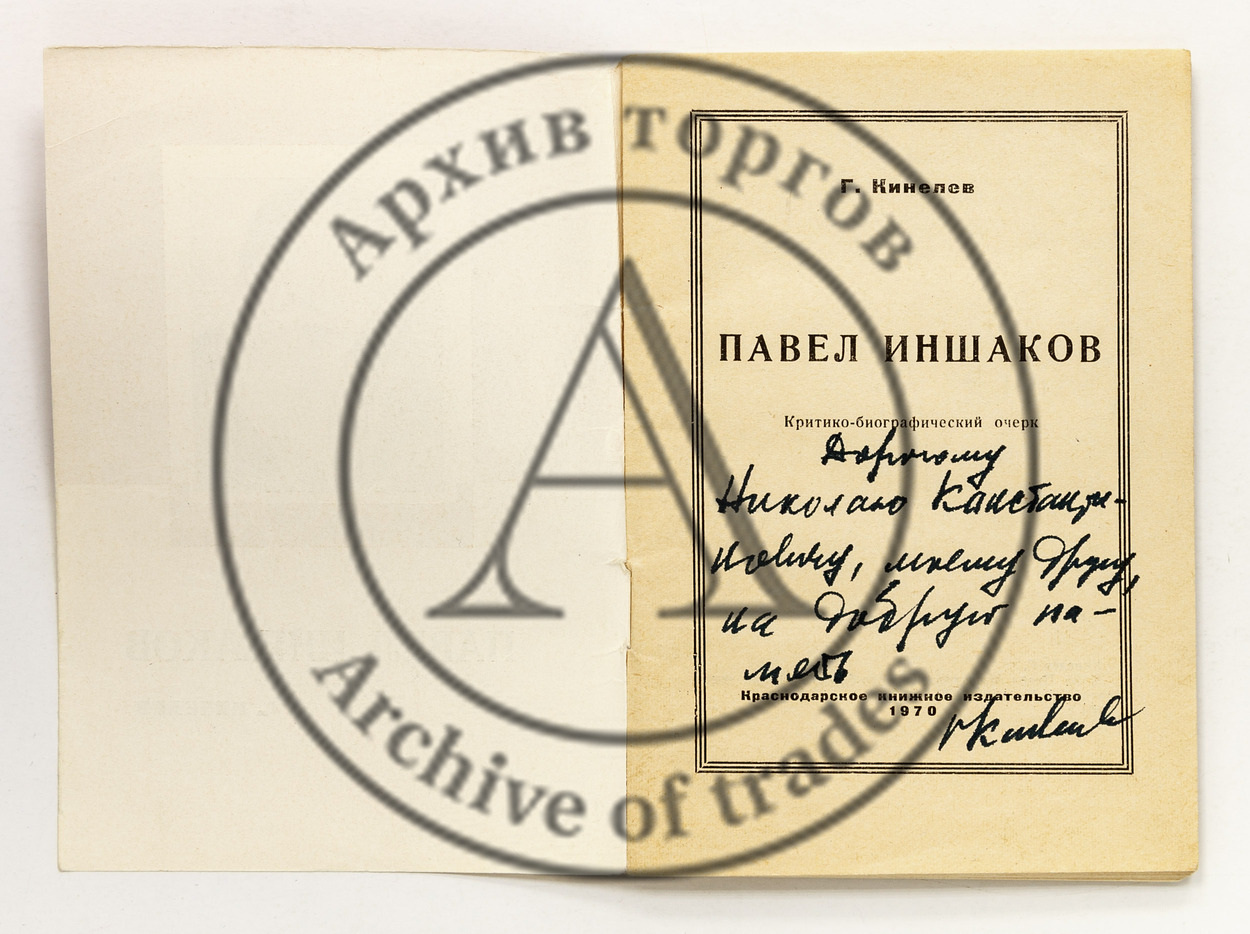 Архив торгов
A
Archive of trades
Г. Кинелев
ПАВЕЛ ИНШАКОВ
Критико-биографический очерк
Дорогому
Николаю Константи-
новичу, моему другу,
на добрую па-
мять
Краснодарское книжное издательство
1970